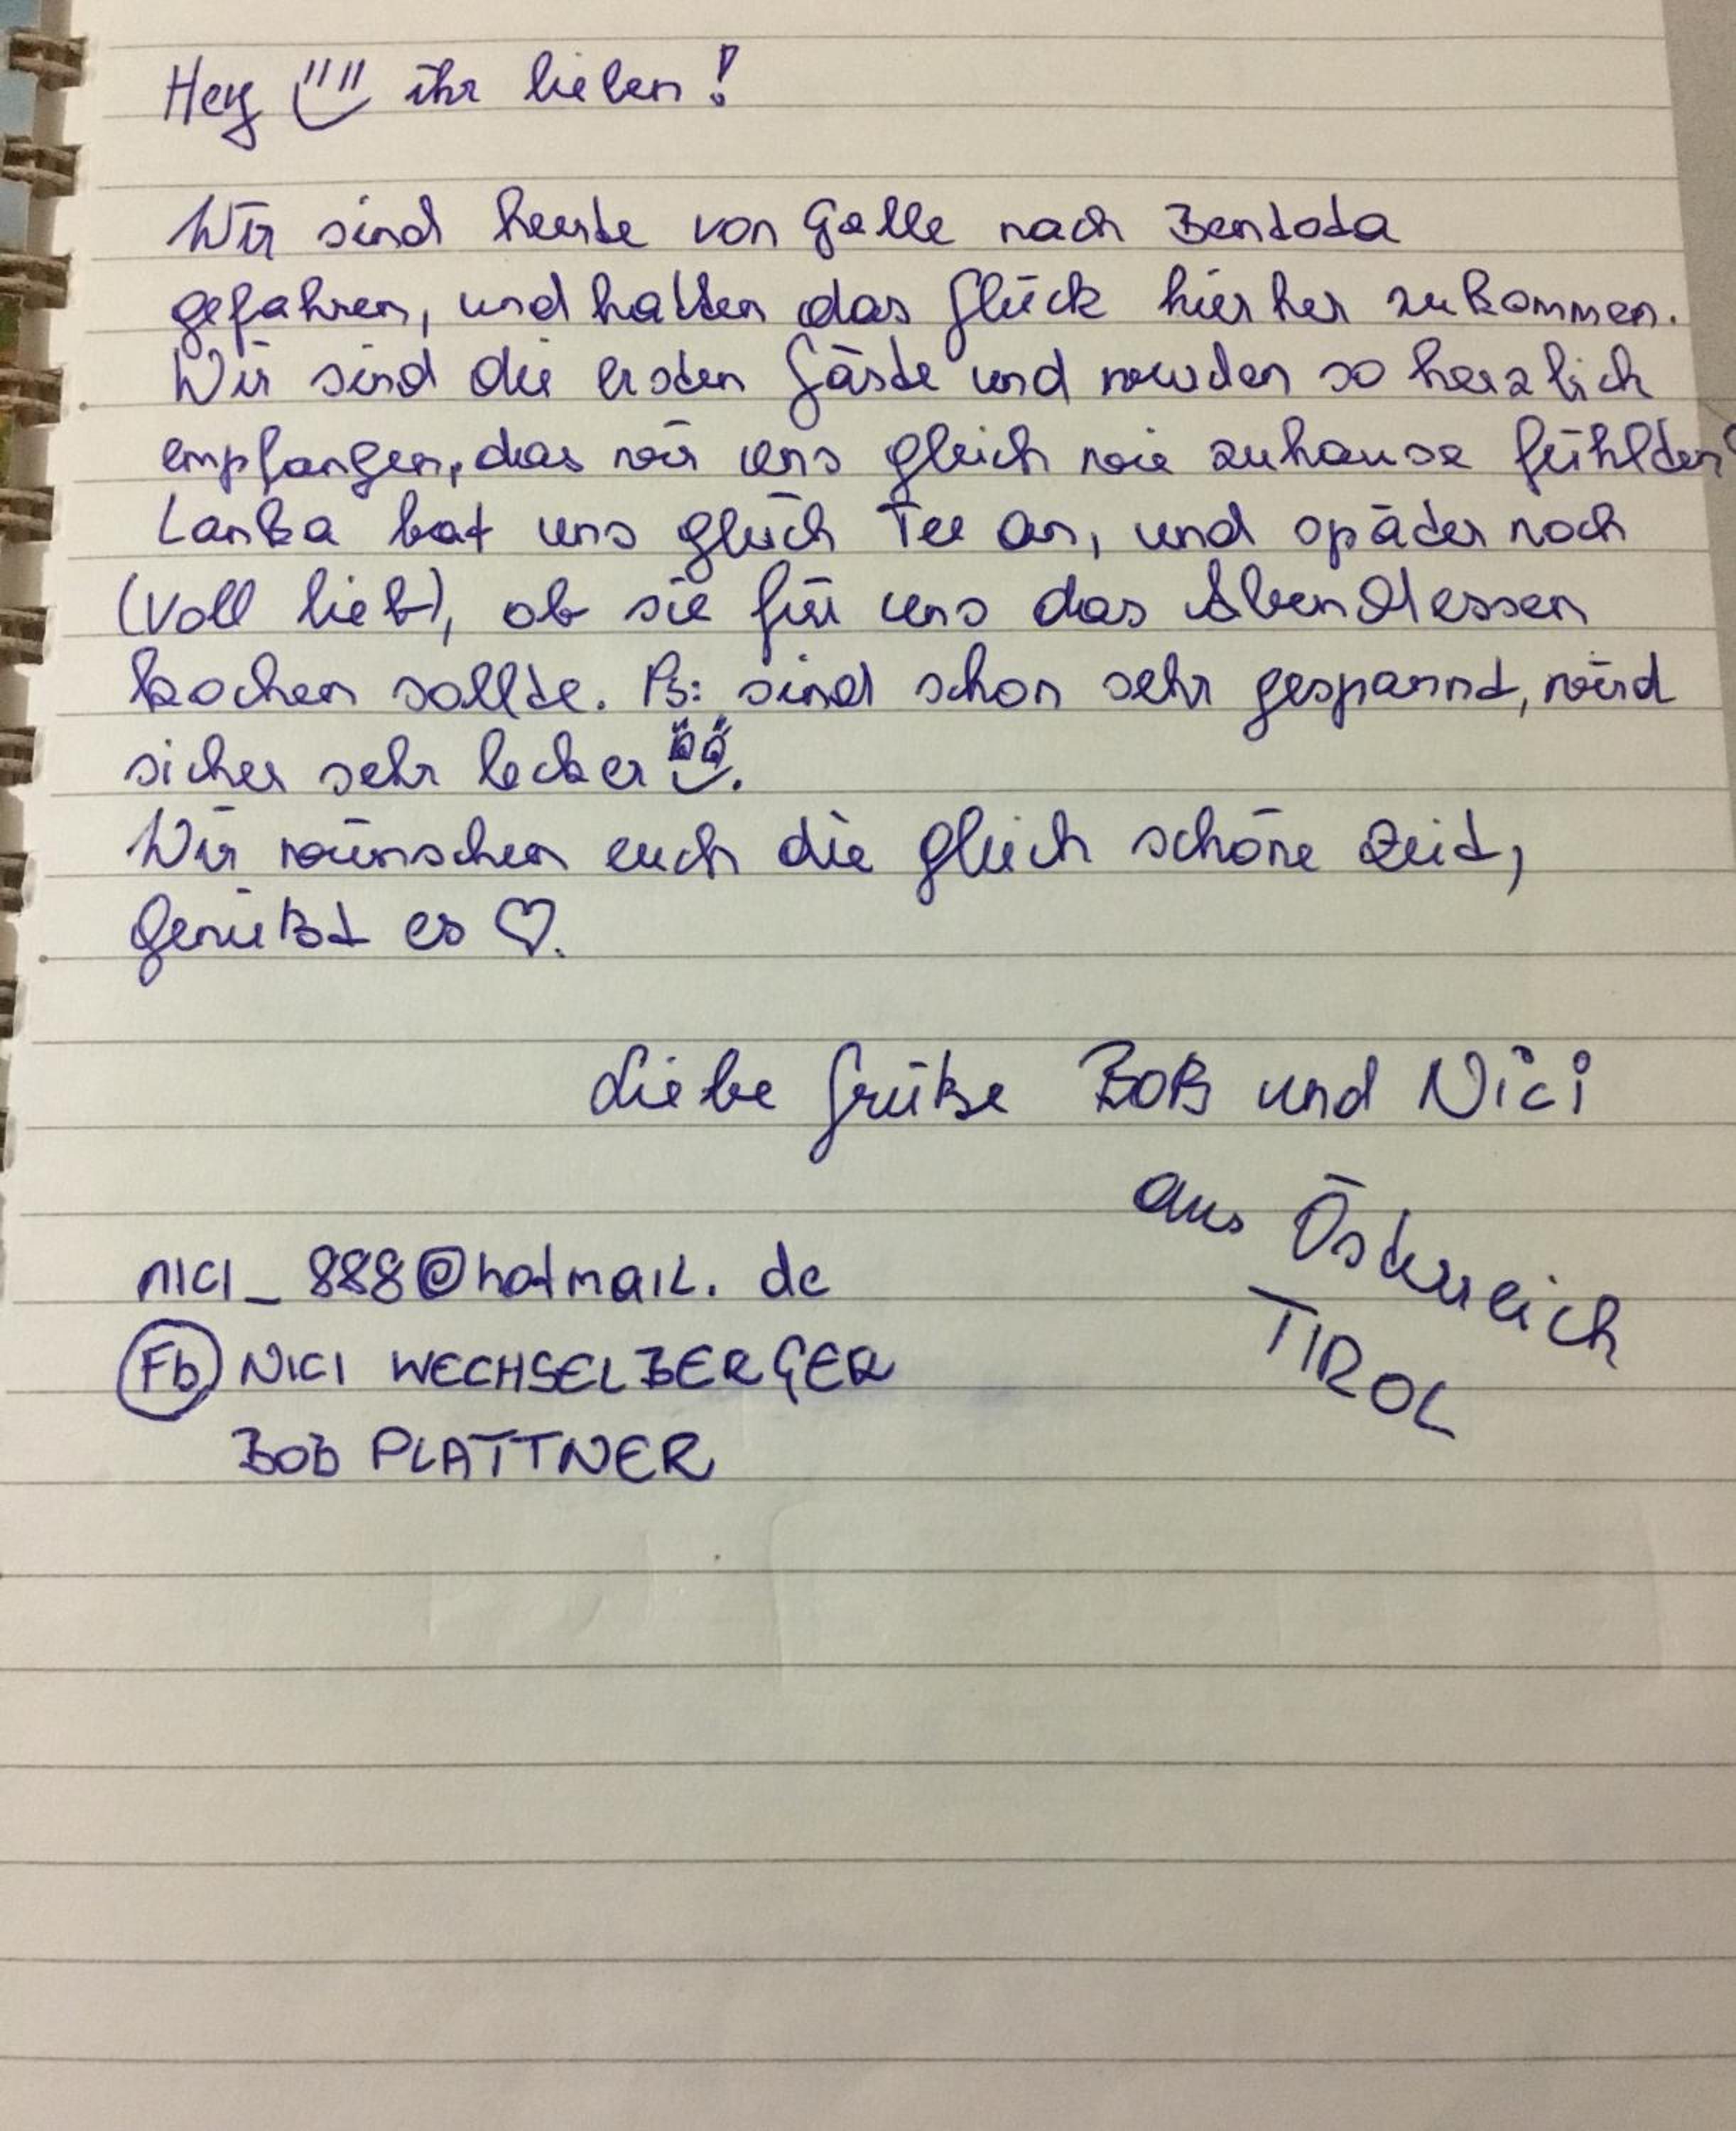 Hey ihr lieben!
Wir sind heute von Galle nach Bentota
gefahren, und hatten das Glück hierher zukommen.
Wir sind die ersten Gäste und wurden so herzlich
empfangen, das wir uns gleich wie zuhause fühlten.
Lanka bat uns gleich Tee an, und später noch
(voll lieb), ob sie für uns das Abendessen
kochen sollte. Ps: sind schon sehr gespannt, wird
sicher sehr lecker.
Wir wünschen euch die gleich schöne Zeit,
genießt es ♡.
Liebe Grüße BOB und Nici
aus Österreich
TIROL
nici_888@hotmail.de
Fb NICI WECHSELBERGER
BOB PLATTNER